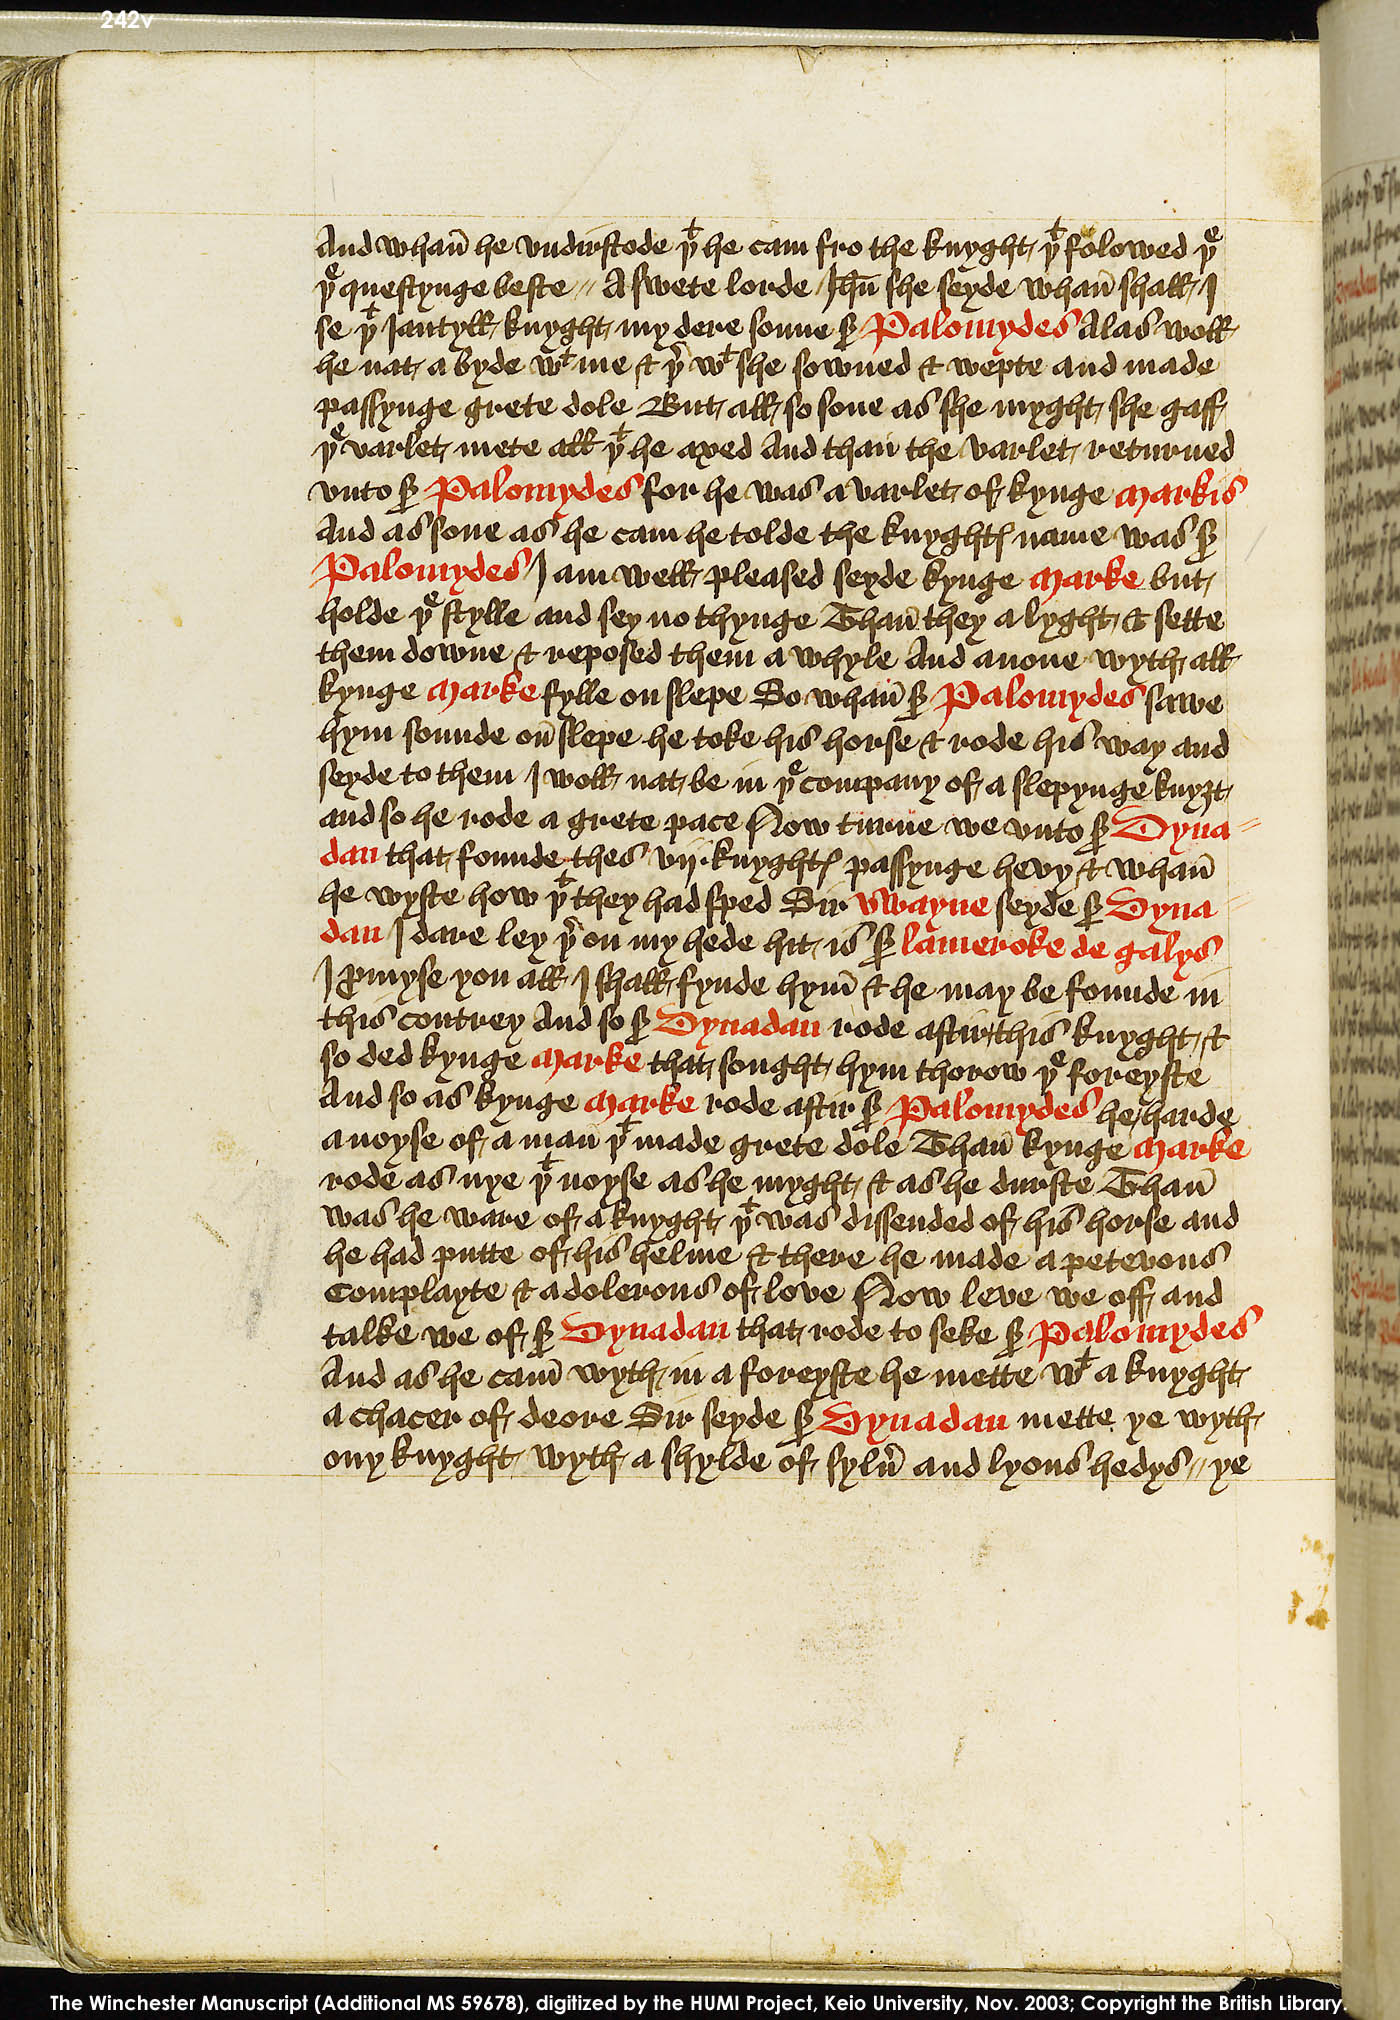 242v
And whan̄ he vndirstode þᵗ he cam fro the knyght þᵗ folowed þᵉ
þᵉ questynge beste // A swete lorde Ihū she seyde whan̄ shall I
se þᵗ Jantyll knyght my dere sonne sꝛ Palomydes Alas woll
he nat a byde wᵗ me & þ̄ wᵗ she sowned & wepte and made
passynge grete dole But all so sone as she myght she gaff
þᵉ varlet mete all þᵗ he axed And than̄ the varlet returned
vnto sꝛ Palomydes for he was a varlet of kynge Markis
And as sone as he cam he tolde the knyghtꝭ name was sꝛ
Palomydes I am well pleased seyde kynge Marke but
holde þᵉ stylle and sey no thynge Than̄ they a lyght & sette
them downe & reposed them a whyle And anone wyth all
kynge Marke fylle on slepe So whan̄ sꝛ Palomydes sawe
hym sounde on̄ slepe he toke his horse & rode his way and
seyde to them I woll nat be in þᵉ company of a slepynge knyȝt
and so he rode a grete pace Now turne we vnto sꝛ Dyna=
dan that founde thes vij knyghtꝭ passynge hevy & whan̄
he wyste how þᵗ they had sped Sir Vwayne seyde sꝛ Dyna=
dan I dare ley þ̄ on my hede hit is sꝛ lameroke de galys
I ꝓmyse you all I shall fynde hym̄ & he may be founde in
this contrey And so sꝛ Dynadan rode aftir this knyght &
so ded kynge Marke that sought hym thorow þᵉ foreyste
And so as kynge Marke rode aftir sꝛ Palomydes he harde
a noyse of a man̄ þᵗ made grete dole Than̄ kynge Marke
rode as nye þᵗ noyse as he myght & as he durste Than̄
was he ware of a knyght þᵗ was dissended of his horse and
he had putte of his helme & there he made a peteuous
Complayte & a dolerous of love Now leve we off and
talke we of sꝛ Dynadan that rode to seke sꝛ Palomydes
And as he cam̄ wyth in a foreyste he mette wᵗ a knyght
a chacer of deore Sir seyde sꝛ Dynadan mette ye wyth
ony knyght wyth a shylde of sylū̉ and lyons hedys // ye
The Winchester Manuscript (Additional MS 59678), digitized by the HUMI Project, Keio University, Nov. 2003; Copyright the British Library.